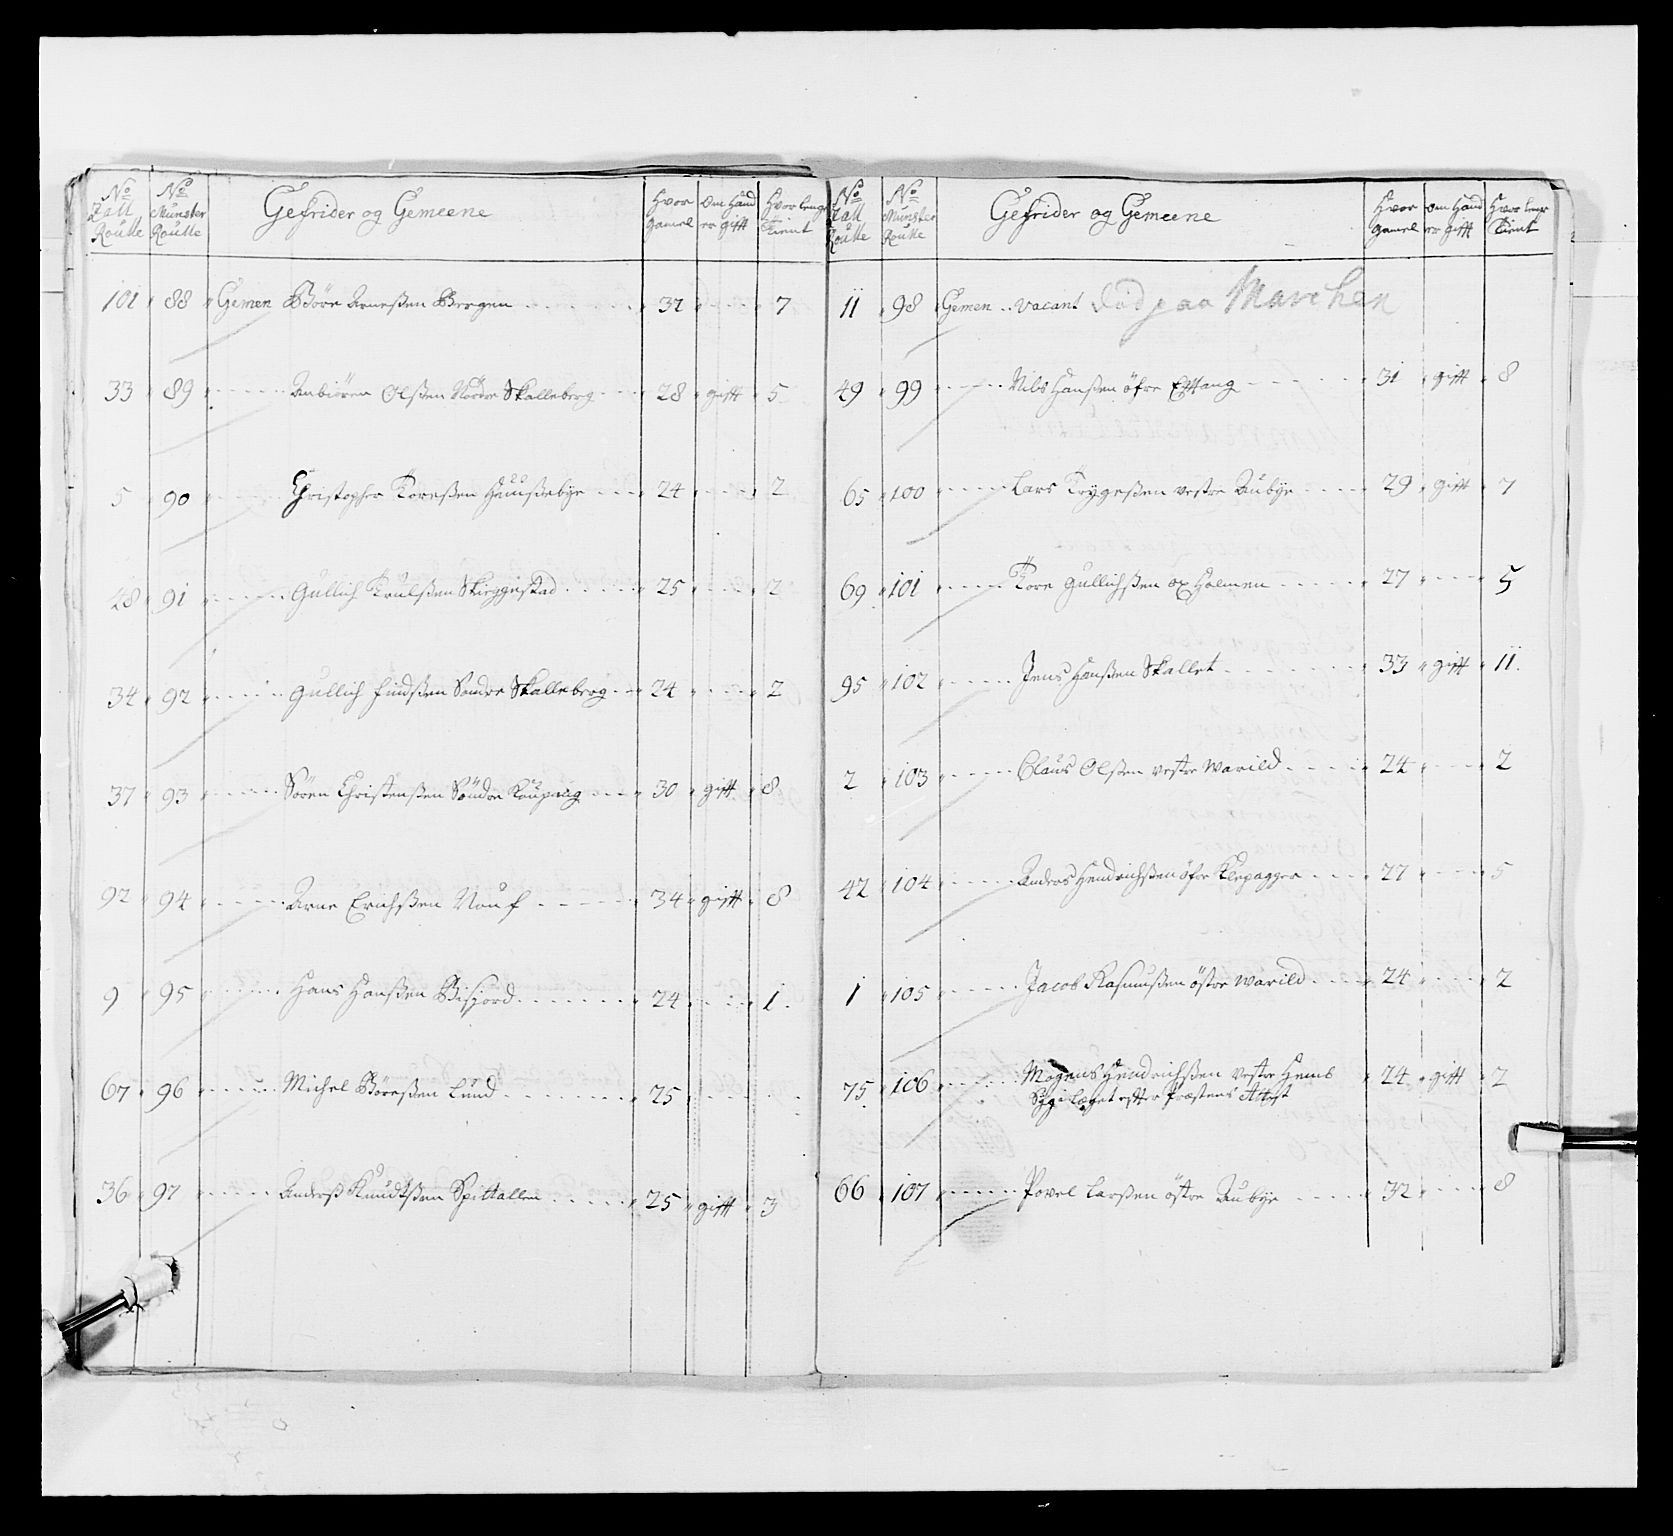 No Tall Roulle | No Munster Roulle | Gefrider og Gemeene | Hvor gamel | Om hand er gifft | Hvor lenge tient
101 88 Gemen Böre Arneßen Bergen 37 7
33 89 Anbiören Olßen Nördre Skalleberg 28 gifft 5
5 90 Christopher Toreßen Haussebÿe 24 2
48 91 Gullich Trulßen Skieggestad 25 2
34 92 Gullich Findßen Söndre Skalleberg 24 2
37 93 Sören Christenßen Söndre Kaupang 30 gifft 8
92 94 Arne Erichßen Nouf 34 gifft 8
9 95 Hans Hanßen Bisjord 24 1
67 96 Michel Böreßen Lund 25
36 97 Anderß Knudtßen Spittallen 25 gifft 3
No Tall Roulle | No Munster Roulle | Gefrider og Gemeene | Hvor gamel | Om Hand er gifft | Hvor lenge tient
11 98 Gemen Vacant död paa Marchen
49 99 Nils Hanßen öfre Eftang 31 gifft 8
65 100 Lars Trygeßen vestre Aubÿe 29 gifft 7
69 101 Tore Gullichßen ox Holmen 27 5
95 102 Jens Hanßen Skallet 33 gifft 11
2 103 Claus Olßen vestre Warild 24 2
42 104 Andres Hendrichßen öfre Klepagger 27 5
1 105 Jacob Rasmußen östre Warild 24 2
75 106 Mogens Hendrichßen vestre Hems 24 gifft 2
Syge læget effter Præstens Attest
66 107 Povel Larßen östre Aubÿe 32 8